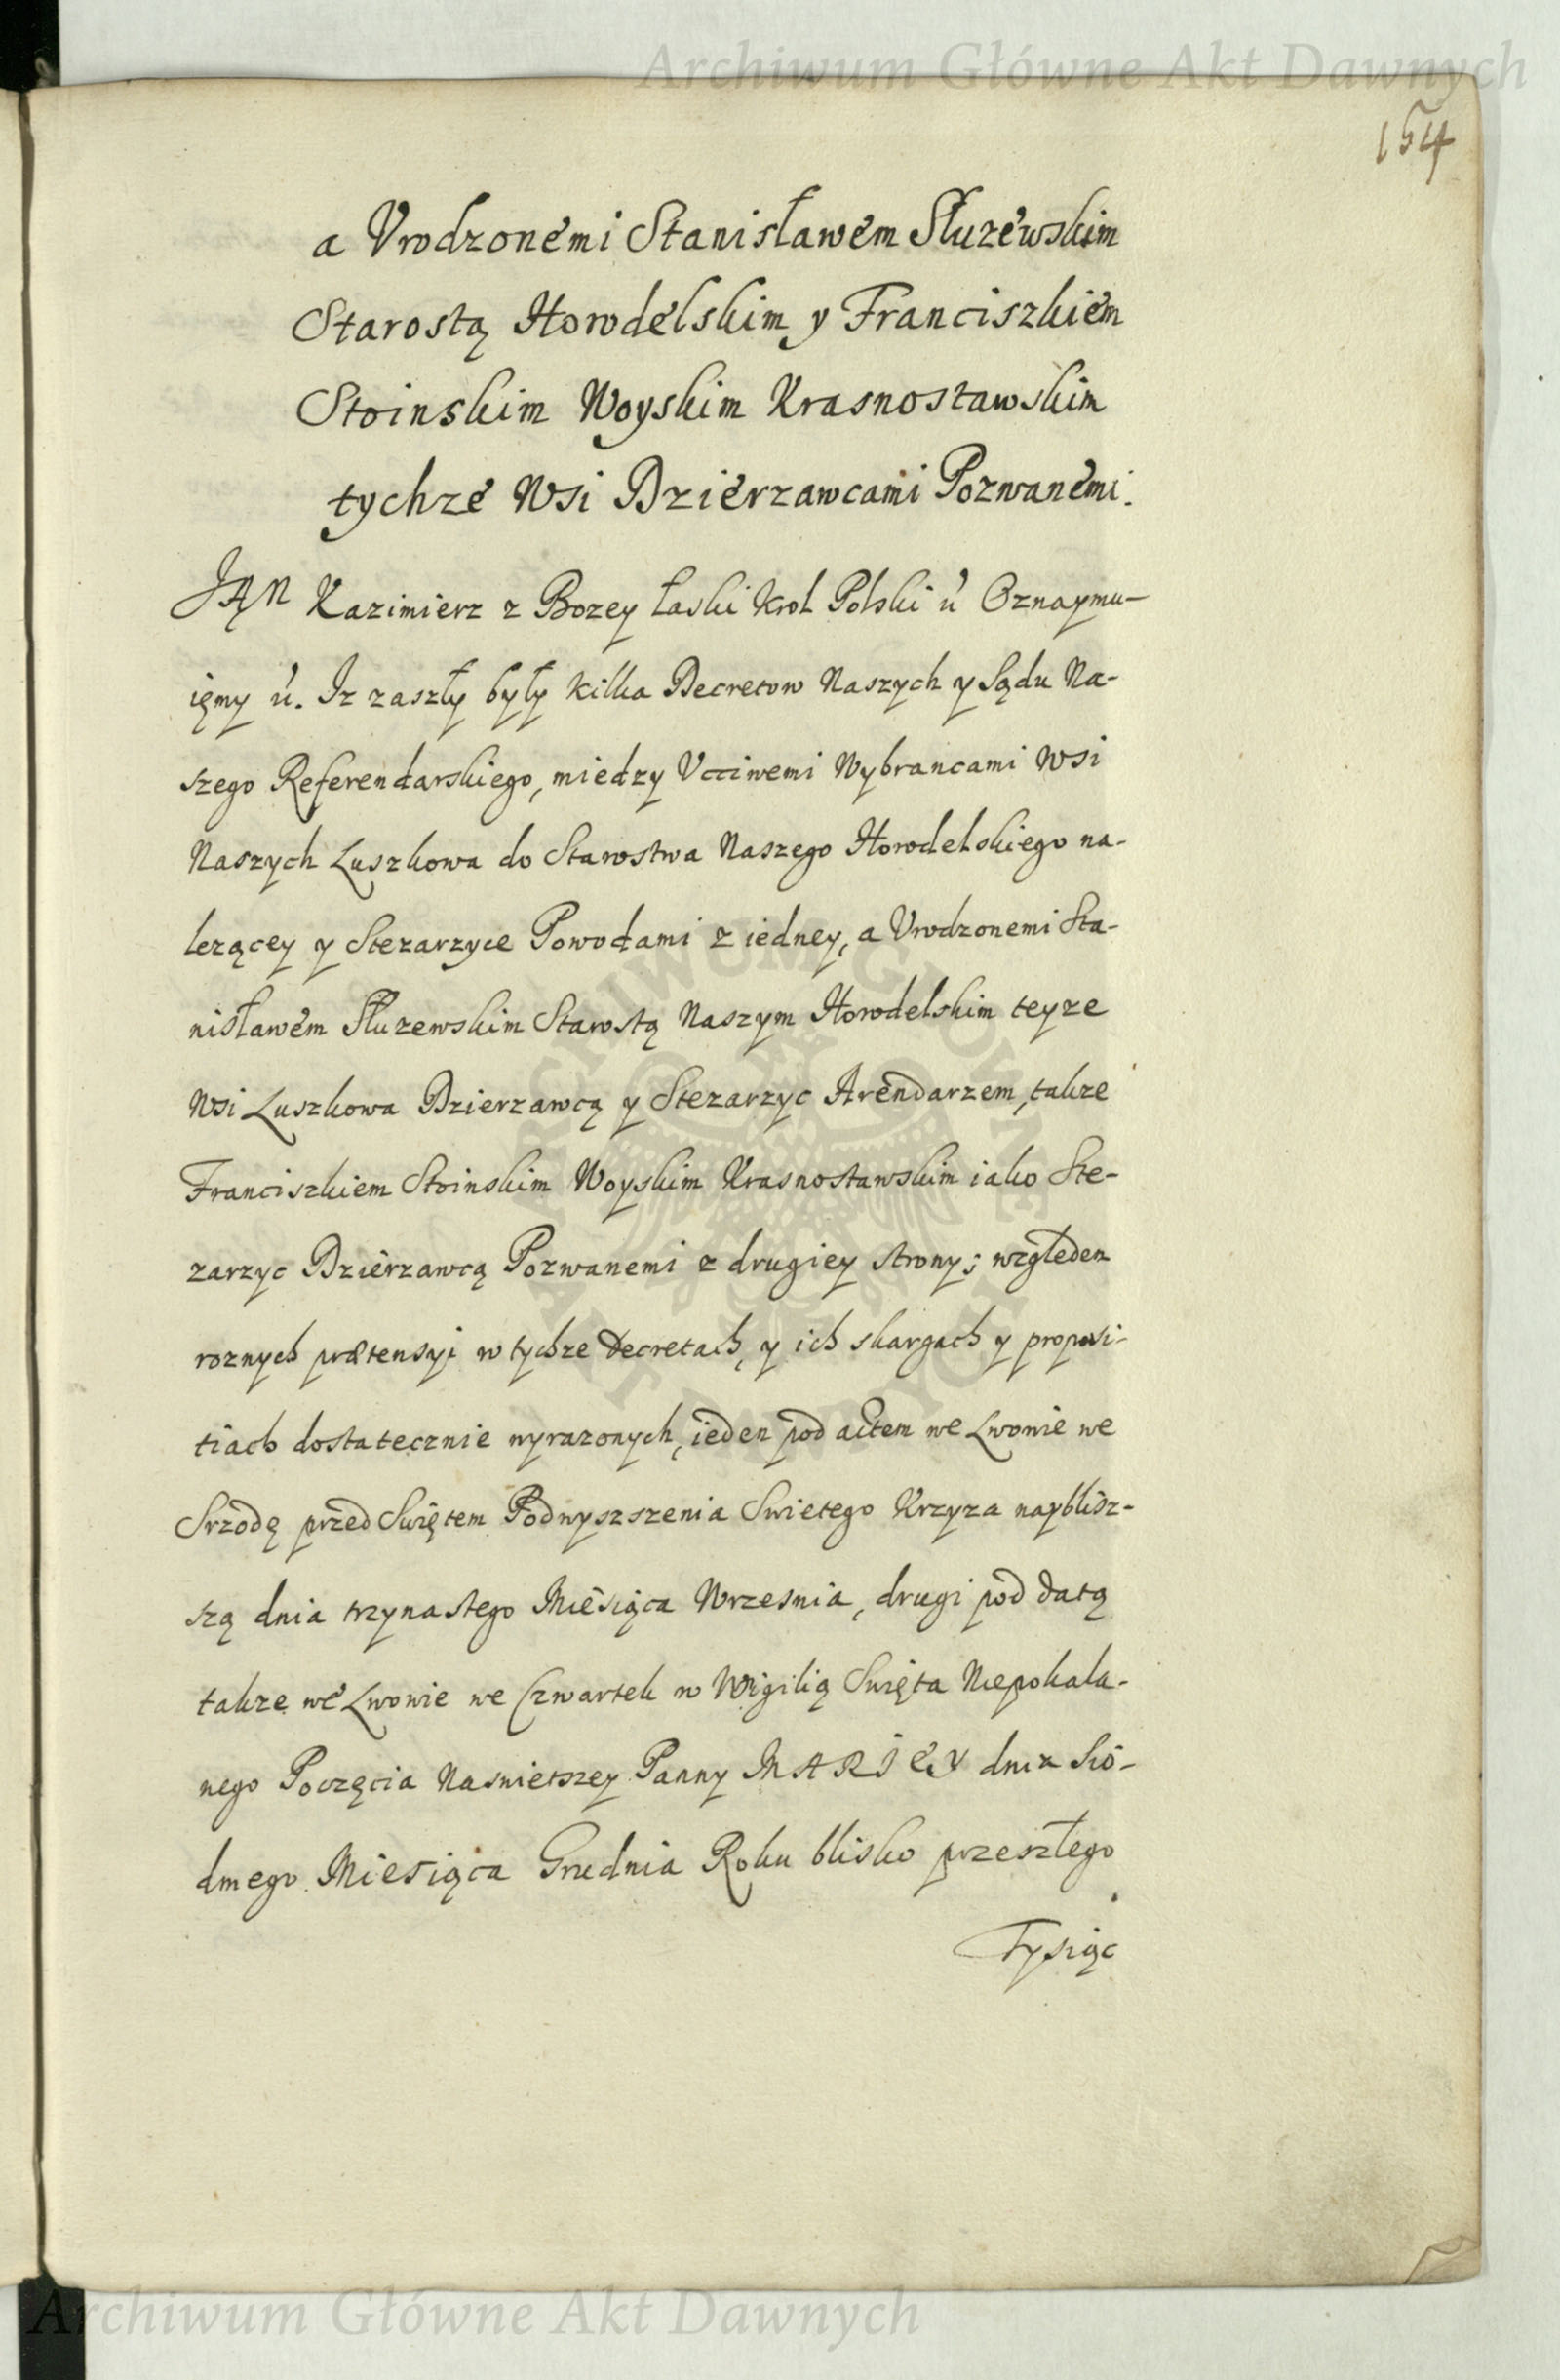 Archiwum Główne Akt Dawnych
154
a Vrodzonemi Stanisławem Służewskim
Starostą Horodelskim y Franciszkiem
Stoinskim Woyskim Krasnostawskim
tychze Wsi Dzierzawcami Pozwanemi.
JAN Kazimierz z Bozey łaski Krol Polski &c Oznaymu-
ięmy &c. Iz zaszły były kilka Decretow Naszych y Sądu Na-
szego Referendarskiego, miedzy Vcciwemi Wybrancami Wsi
Naszych Luszkowa do Starostwa Naszego Horodelskiego na-
lezącey y Stezarzyce Powodami z iedney, a Vrodzonemi Sta-
nisławem Słuzewskim Starostą Naszym Horodelskim teyze
Wsi Luszkowa Dzierzawcą y Stezarzyc Arendarzem, takze
Franciszkiem Stoinskim Woyskim Krasnostawskim iako Ste-
zarzyc Dzierzawcą Pozwanemi z drugiey strony; względem
roznych prætensyi w tychze Decretach, y ich skargach y proposi-
tiach dostatecznie wyrazonych, ieden pod actem we Lwowie we
Srzodę przed Swiętem Podwyszszenia Swietego Krzyza naybliz-
szą dnia trzynastego Miesiąca Wrzesnia, drugi pod datą
takze we Lwowie we Czwartek w Wigilią Swięta Niepokala-
nego Poczęcia Naswietszey Panny MARIEY dnia Sio-
dmego Miesiąca Grudnia Roku blisko przeszłego
Tysiąc
Archiwum Główne Akt Dawnych